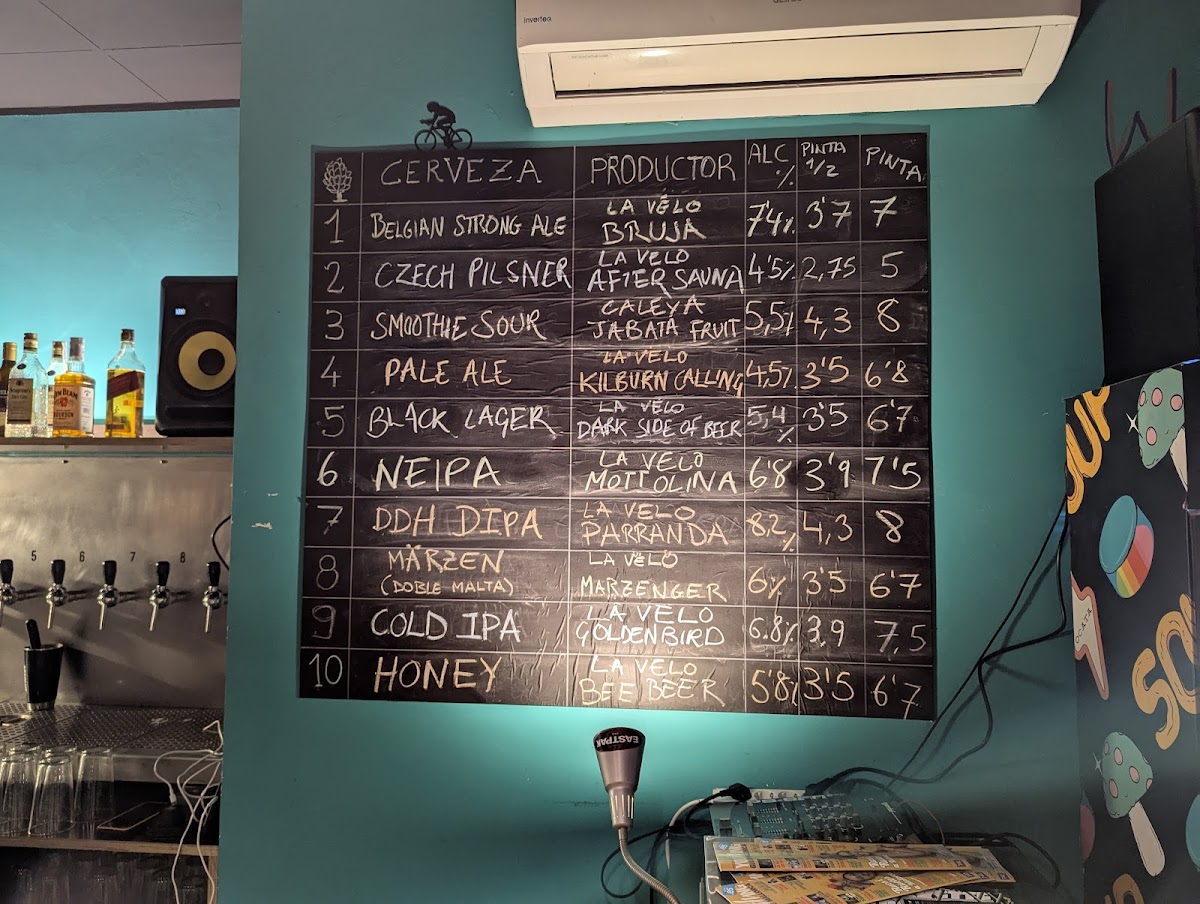 inverter
CERVEZA PRODUCTOR ALC % PINTA 1/2 PINTA
1 BELGIAN STRONG ALE LA VÉLO BRUJA 7'4% 3'7 7
2 CZECH PILSNER LA VELO AFTER SAUNA 4'5% 2,75 5
3 SMOOTHIE SOUR CALEYA JABATA FRUIT 5,5% 4,3 8
4 PALE ALE LA VELO KILBURN CALLING 4,5% 3'5 6'8
5 BLACK LAGER LA VÉLO DARK SIDE OF BEER 5,4% 3'5 6'7
6 NEIPA LA VELO MOTTOLINA 6'8 3'9 7'5
7 DDH DIPA LA VELO PARRANDA 8,2% 4,3 8
8 MÄRZEN (DOBLE MALTA) LA VÉLO MARZENGER 6% 3'5 6'7
9 COLD IPA LA VELO GOLDENBIRD 6.8% 3.9 7,5
10 HONEY LA VELO BEE BEER 5'8% 3'5 6'7
5 6 7 8
JIM BEAM
EASTPAK
SOUP